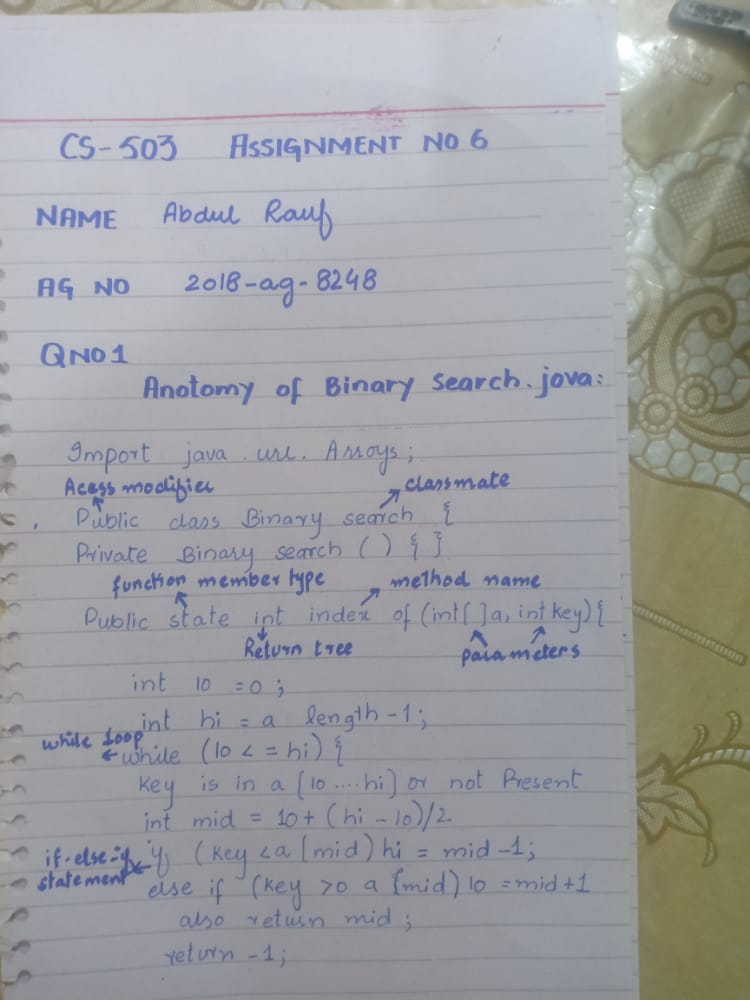 CS-503 ASSIGNMENT NO 6
NAME Abdul Rauf
AG NO 2018-ag-8248
QNO1
Anotomy of Binary Search.java:
Import java.url.Arroys;
Acess modifier classmate
Public class Binary search {
Private Binary search ( ) { }
function member type method name
Public state int index of (int[ ]a, int key){
Return tree parameters
int 10 = 0 ;
int hi = a length-1;
while loop
while (10 < = hi) {
Key is in a [10 .... hi] or not Present
int mid = 10+ (hi - 10)/2
if-else-if if (Key <a [mid) hi = mid -1;
statement else if (Key >0 a [mid) 10 =mid+1
also return mid ;
return -1;